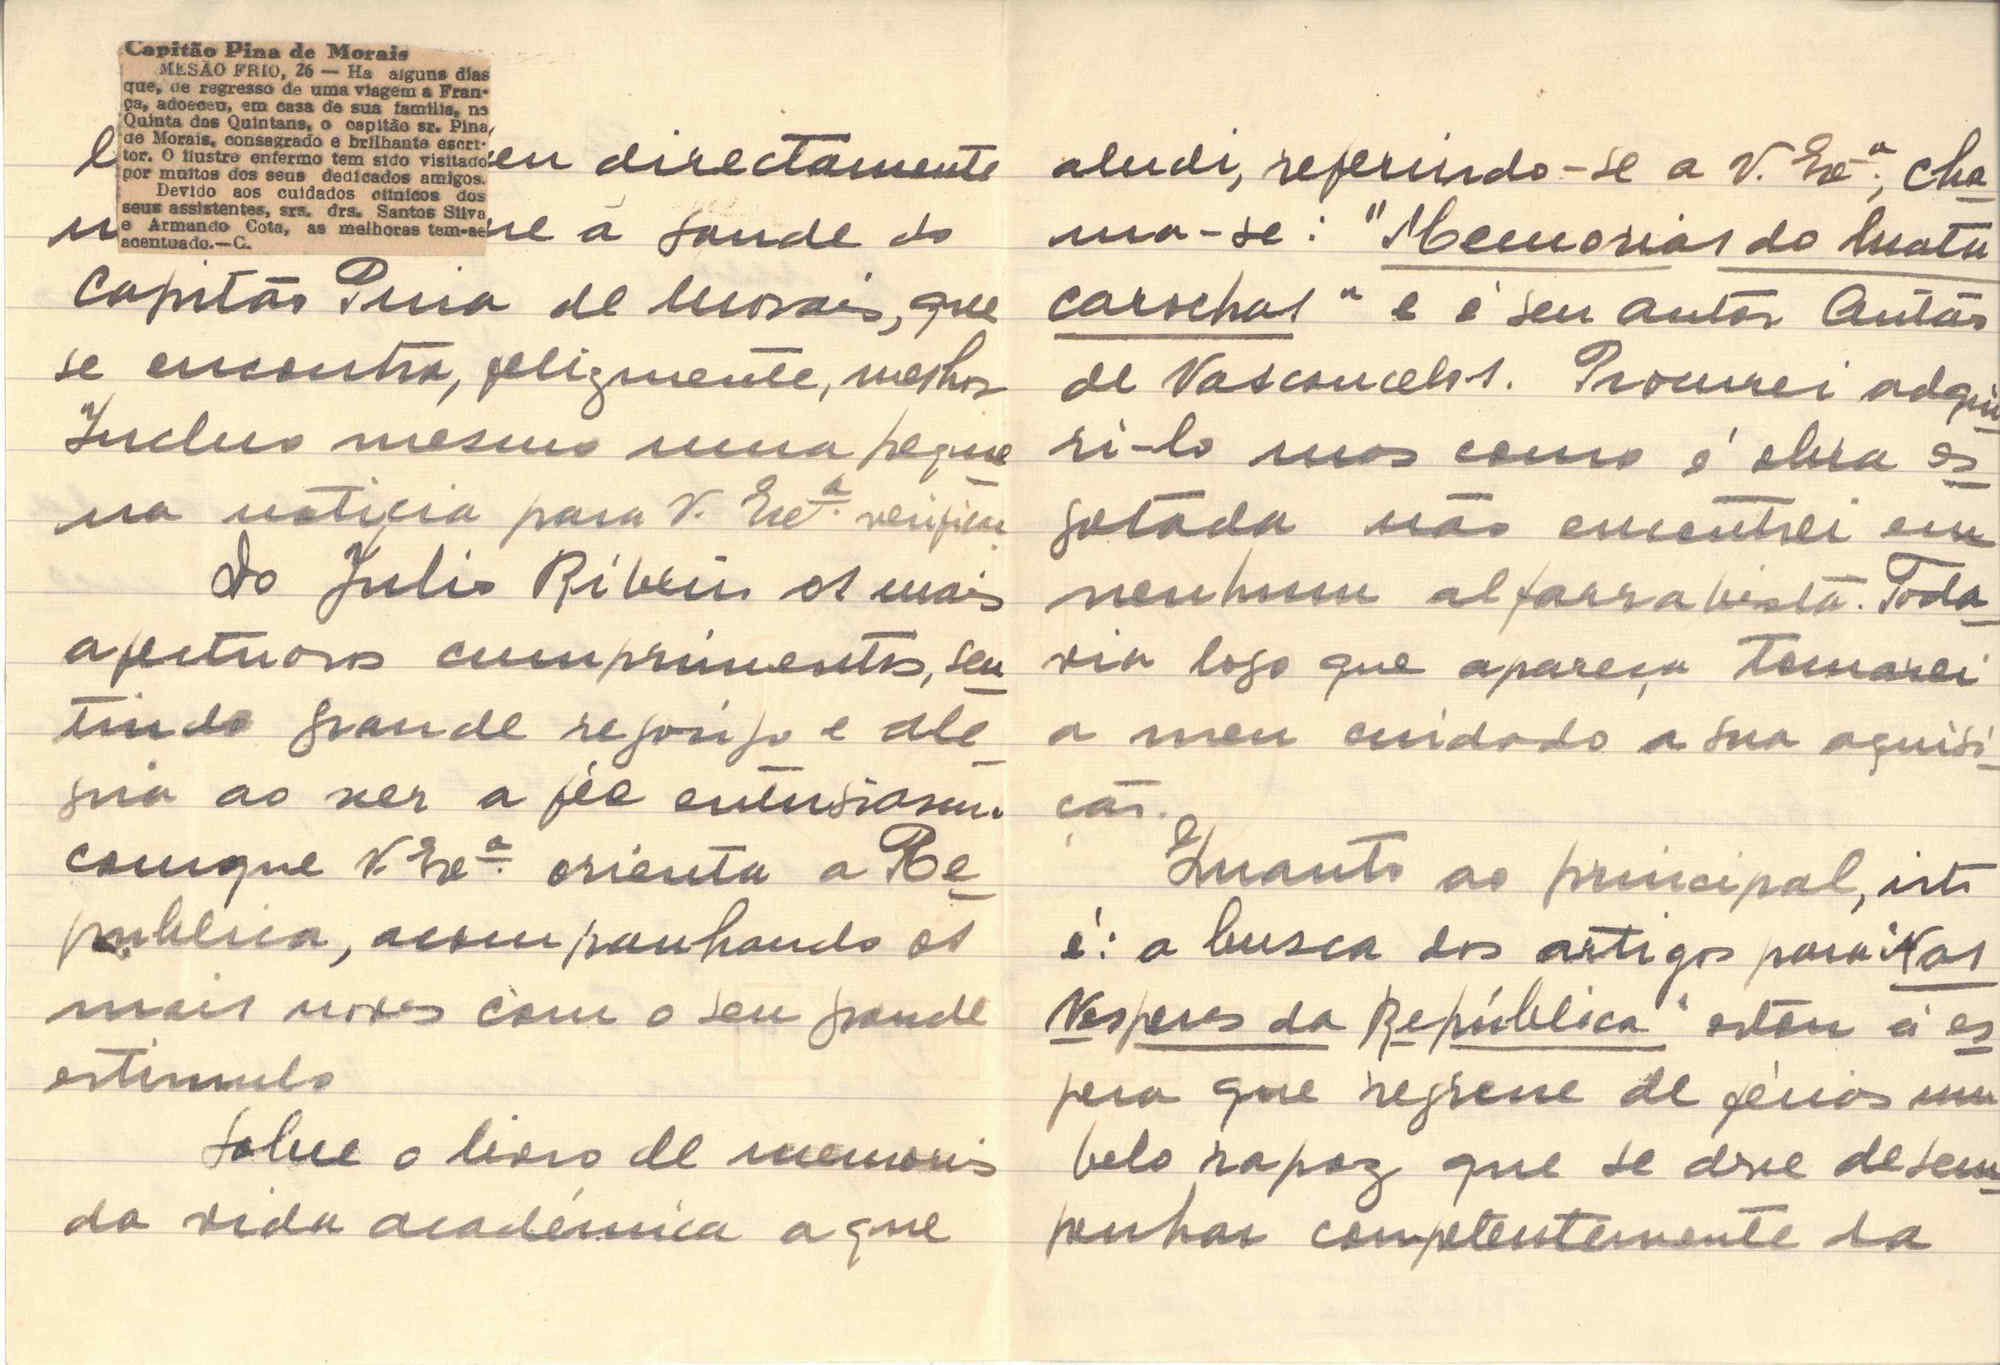 Capitão Pina de Morais
MESÃO FRIO, 26 — Ha alguns dias
que, de regresso de uma viagem a Fran-
ça, adoeceu, em casa de sua familia, na
Quinta dos Quintans, o capitão sr. Pina
de Morais, consagrado e brilhante escri-
tor. O ilustre enfermo tem sido visitado
por muitos dos seus dedicados amigos.
Devido aos cuidados clinicos dos
seus assistentes, srs. drs. Santos Silva
e Armando Cota, as melhoras tem-se
acentuado.—C.
directamente
á saude do
Capitão Pina de Morais, que
se encontra, felizmente, melhor
Incluo mesmo uma peque
na noticia para V. Exª. verificar
Do Julio Ribeiro os mais
afectuosos cumprimentos, sen
tindo grande regosijo e ale
gria ao ver a fée entusiasmo
comque V. Exª. orienta a Re
publica, acompanhando os
mais novos com o seu grande
estimulo
Sobre o livro de memorias
da vida académica a que
aludi, referindo-se a V. Exª, cha
ma-se: "Memorias do Mata
carochas" e é seu autor Antão
de Vasconcelos. Procurei adqui
ri-lo mas como é obra es
gotada não encontrei em
nenhum alfarrabista. Toda
via logo que apareça tomarei
a meu cuidado a sua aquisi
ção.
Quanto ao principal, isto
é: a busca dos artigos para "Nas
Vesperas da República" estou á es
pera que regresse de férias um
belo rapaz que se deve desem
penhar competentemente da